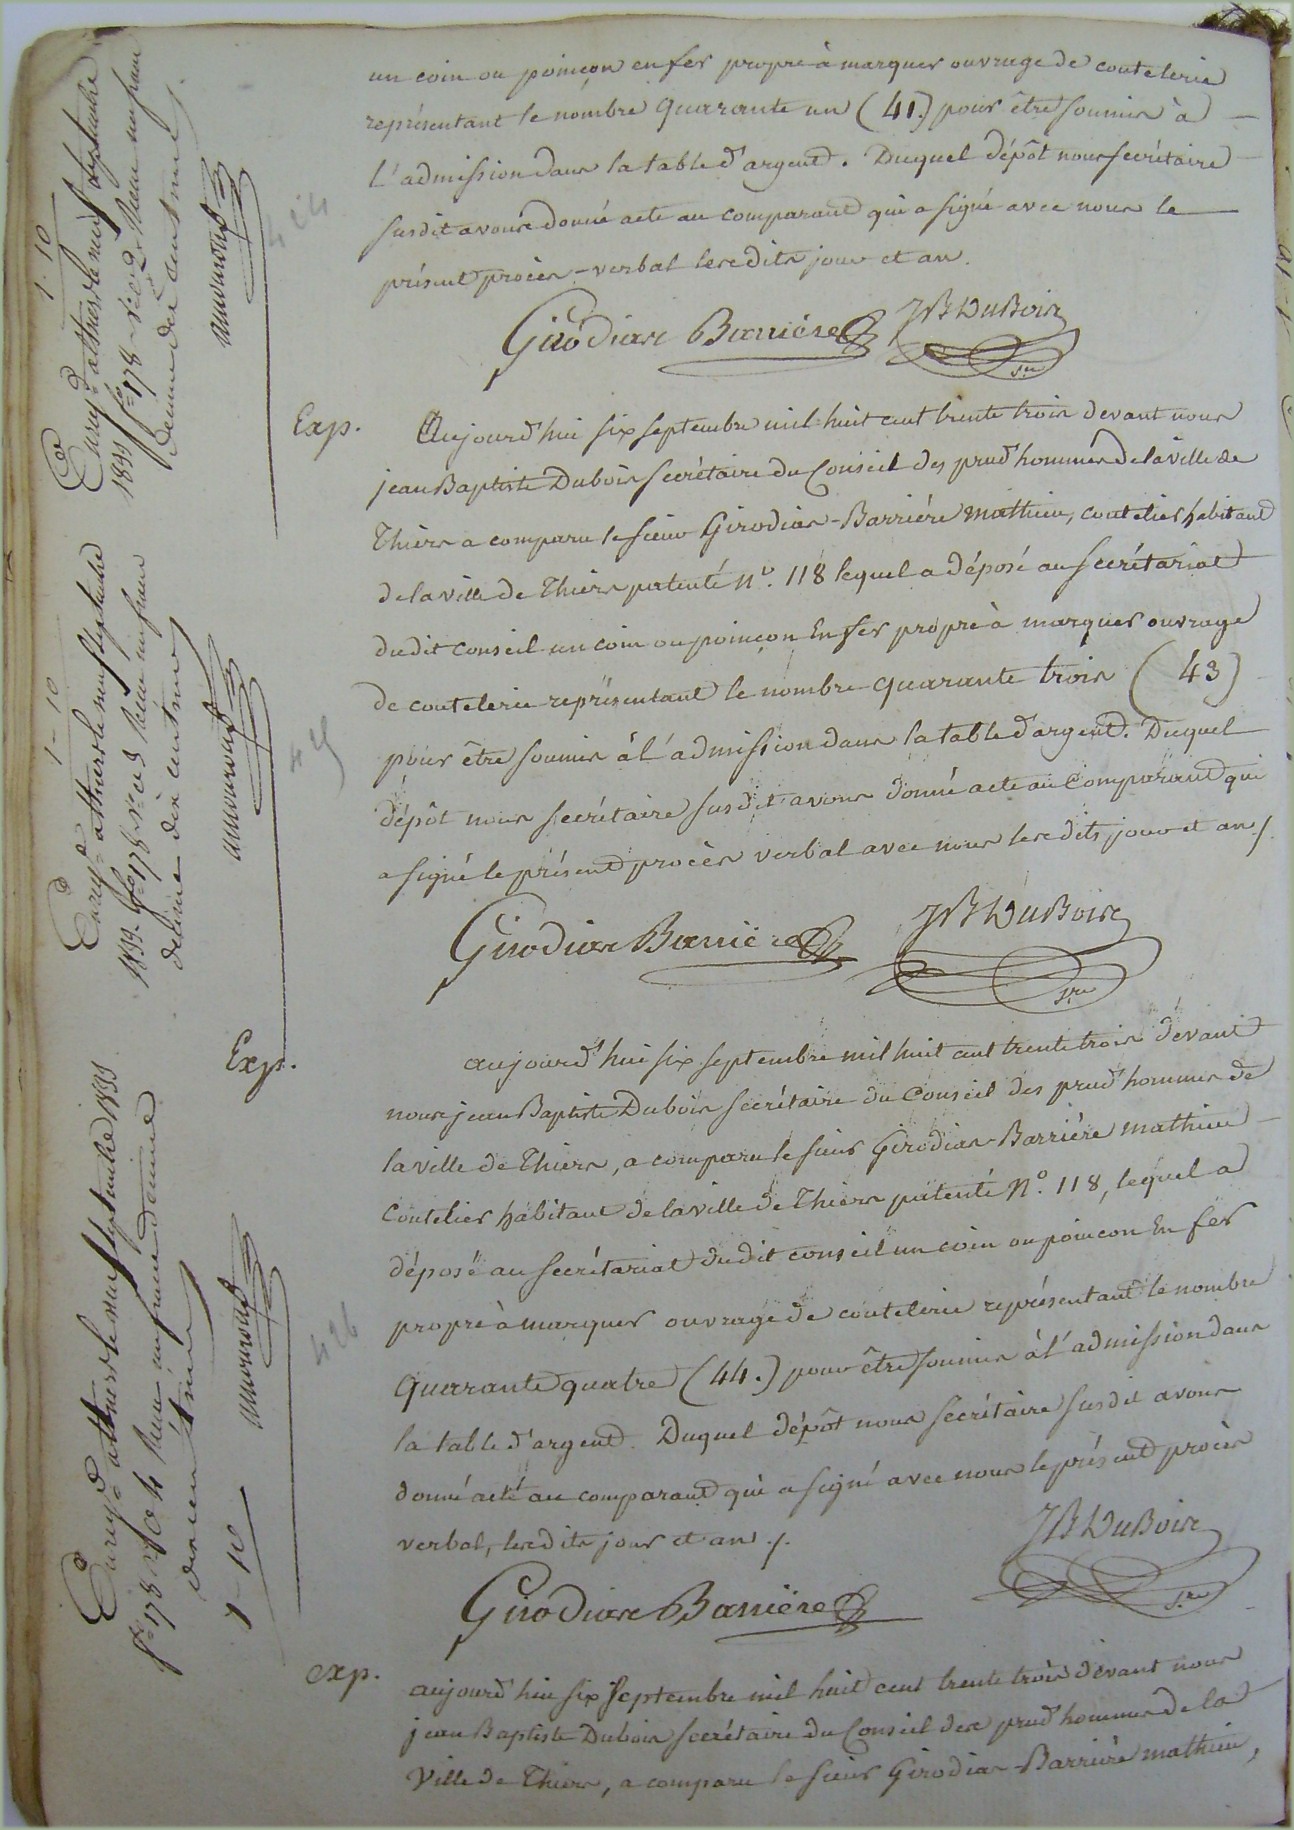 un coin ou poinçon en fer propre à marquer ouvrage de coutelerie
représentant le nombre quarante un (41.) pour être soumis à
l'admission dans la table d'argent. Duquel dépôt nous secrétaire
susdit avons donné acte au comparant qui a signé avec nous le
présent procès-verbal lesdits jour et an.
Girodias Barrière JB Dubois
s.re
Exp. Aujourd'hui six septembre mil huit cent trente trois devant nous
jean Baptiste Dubois secrétaire du Conseil des prud'hommes de la ville de
Thiers a comparu le sieur Girodias-Barrière mathieu, coutelier habitant
de la ville de Thiers patenté N.o 118 lequel a déposé au secrétariat
dudit conseil un coin ou poinçon En fer propre à marquer ouvrage
de coutelerie représentant le nombre quarante trois (43)
pour être soumis à l'admission dans la table d'argent. Duquel
dépôt nous secrétaire susdit avons donné acte au Comparant qui
a signé le présent procès verbal avec nous lesdits jour et an ./.
Girodias Barrière JB Dubois
s.re
Exp.
aujourd'hui six septembre mil huit cent trente trois devant
nous jean Baptiste Dubois secrétaire du Conseil des prud'hommes de
la ville de Thiers, a comparu le sieur Girodias-Barrière mathieu
Coutelier habitant de la ville de Thiers patenté N.o 118, lequel a
déposé au secrétariat dudit conseil un coin ou poincon En fer
propre à marquer ouvrage de coutelerie représentant le nombre
quarante quatre (44.) pour être soumis à l'admission dans
la table d'argent. Duquel dépôt nous secrétaire susdit avons
donné acte au comparant qui a signé avec nous le présent procès
verbal, lesdits jour et an ./.
JB Dubois
s.re
Girodias Barrière
exp. aujourd'hui six septembre mil huit cent trente trois devant nous
jean Baptiste Dubois secrétaire du Conseil des prud'hommes de la
Ville de Thiers, a comparu le sieur Girodias-Barrière mathieu,
1-10
Enreg.d à thiers le neuf septembre
1833 f.o 178 r.o c. Reçu un franc
décime dix centimes
424
1-10
Enreg.d à thiers le neuf septembre
1833 f.o 178 r.o c. 3 Reçu un franc
décime dix centimes
425
Enreg.d à thiers le neuf septembre 1833
f.o 178 r.o c. 4 Reçu un franc décime
dix centimes
1-10
426